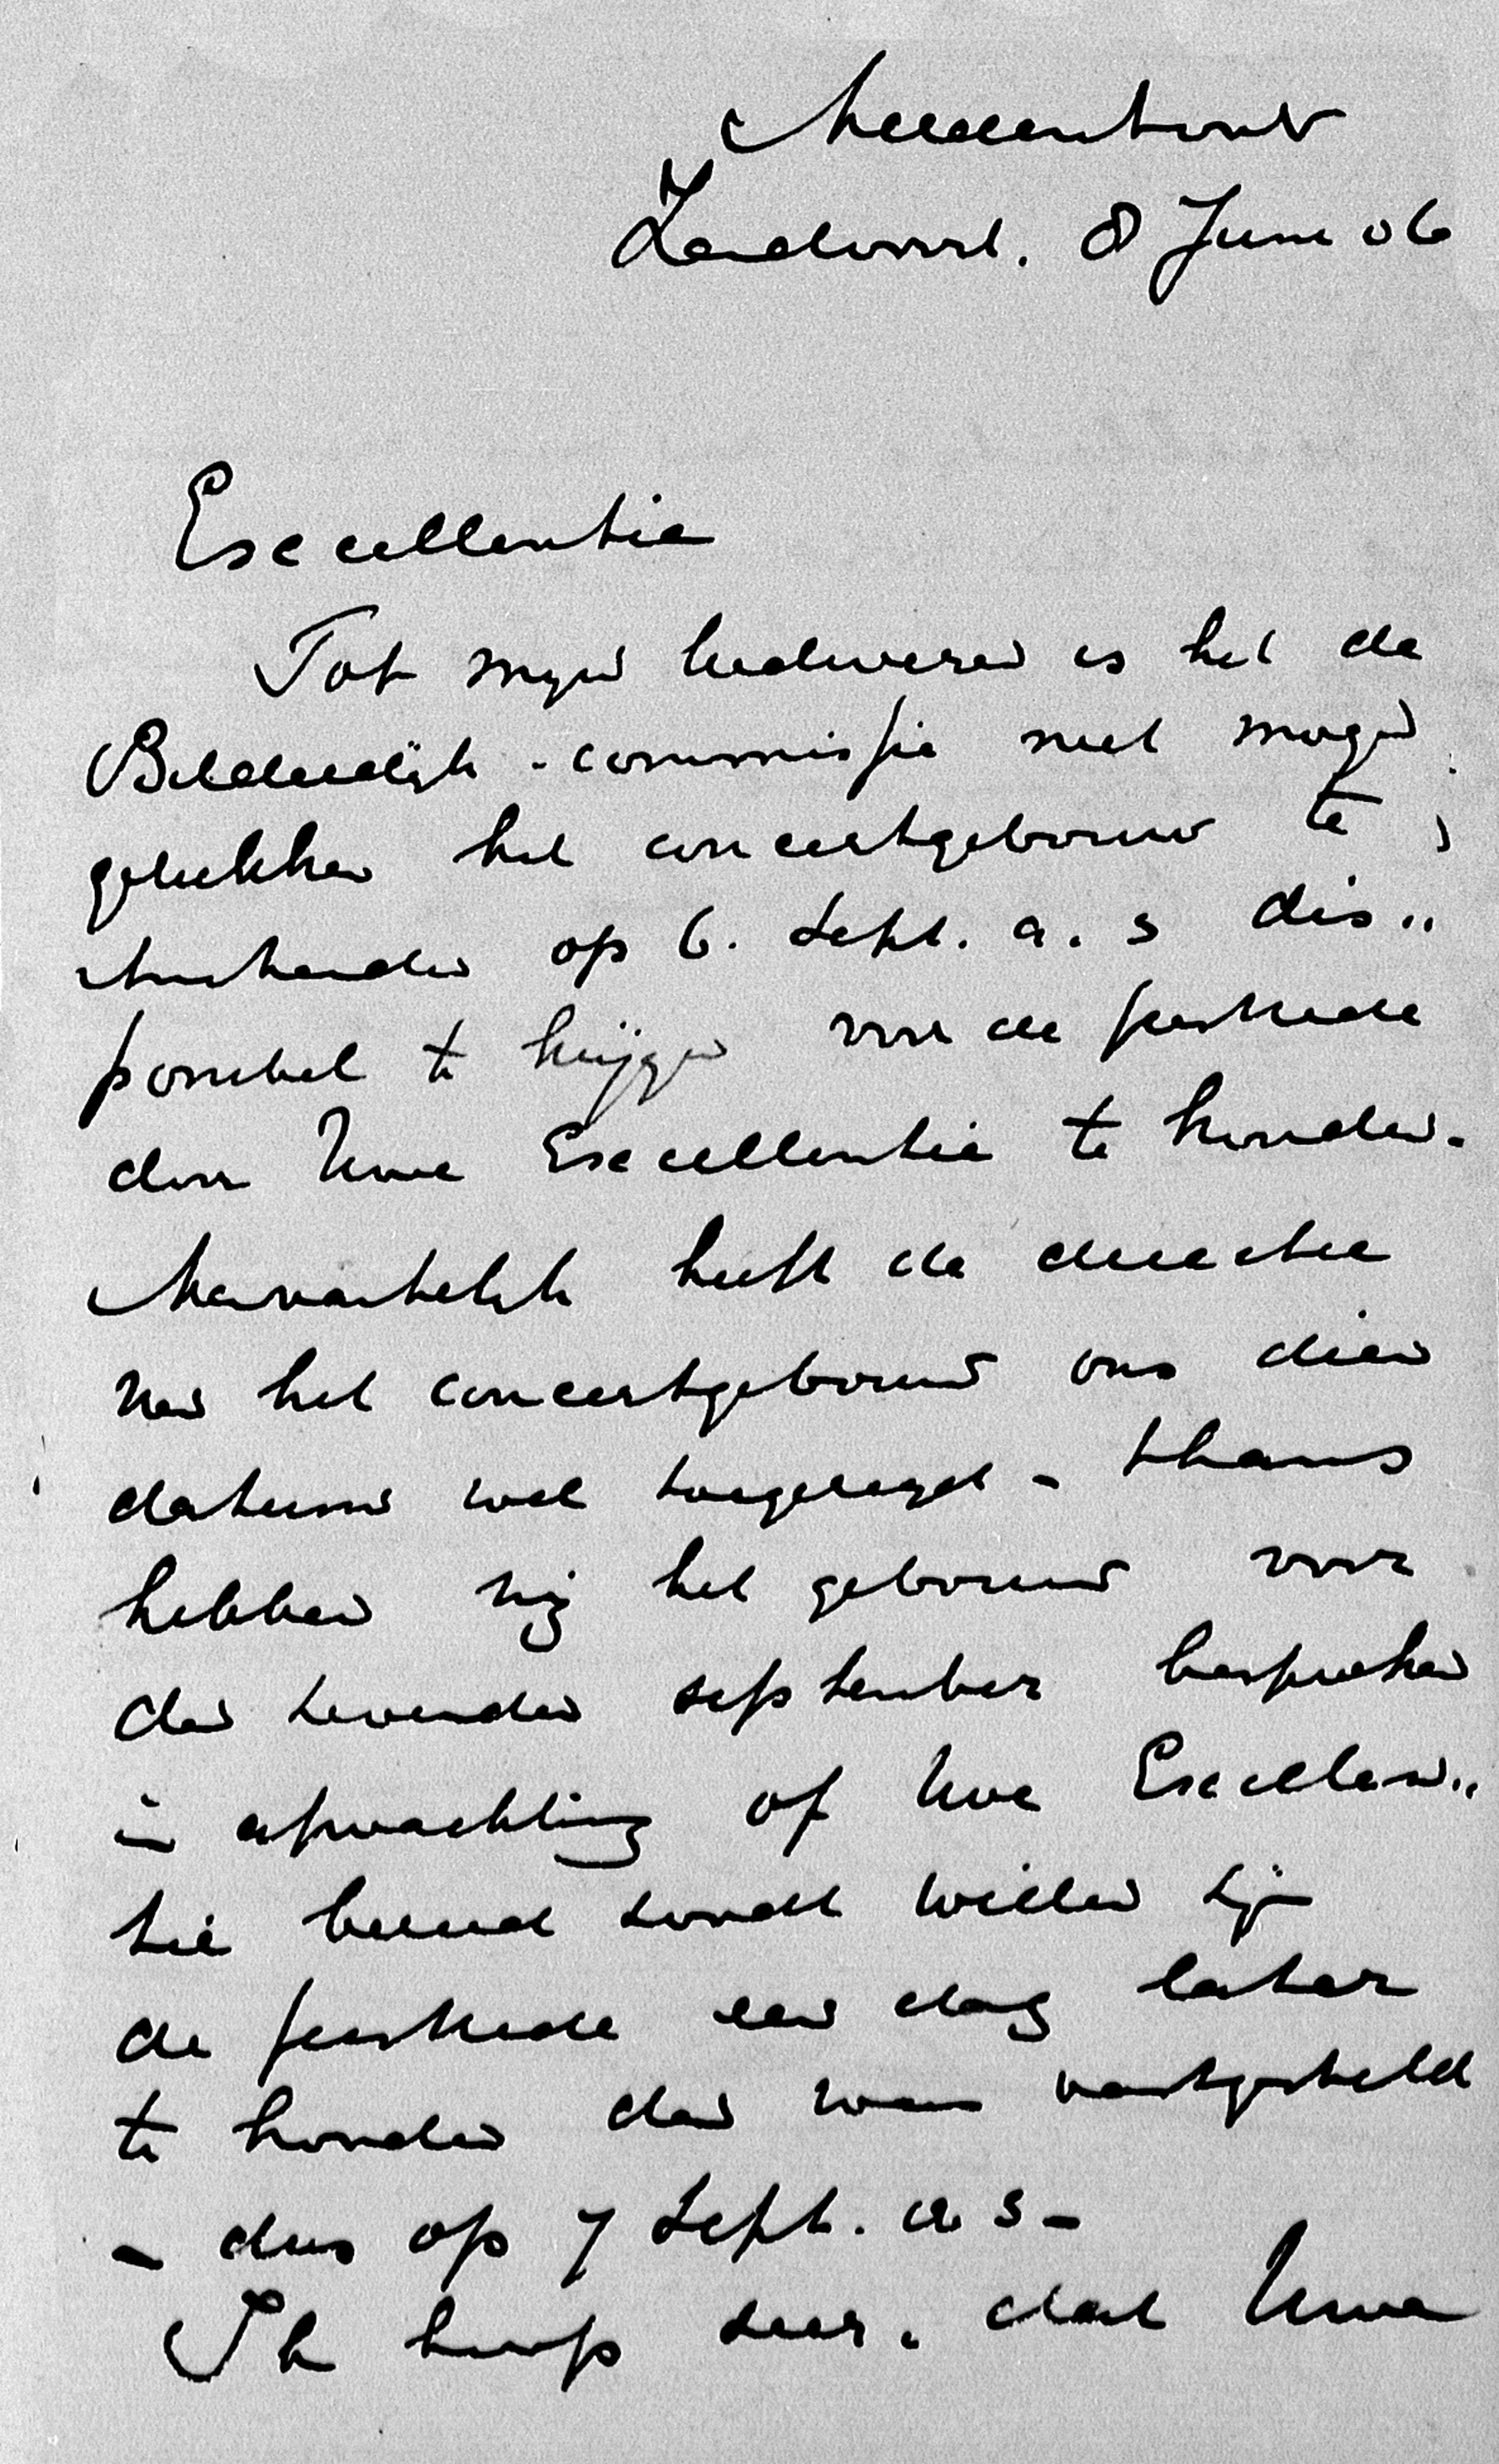 Meerenhout
Zandvoort. 8 Juni 06
Excellentie
Tot mijn leedwezen is het de
Bilderdijk-commissie niet mogen
gelukken het concertgebouw te
Amsterdam op 6. Sept. a. s dis„
ponibel te krijgen voor de feestrede
door Uwe Excellentie te houden.
Aanvankelijk heeft de directie
van het concertgebouw ons dien
datum wel toegezegd - thans
hebben wij het gebouw voor
den zevenden september besproken
in afwachting of Uwe Excellen„
tie bereid zoudt willen zijn
de feestrede een dag later
te houden dan was vastgesteld
- dus op 7 Sept. a s -
Ik hoop zeer, dat Uwe